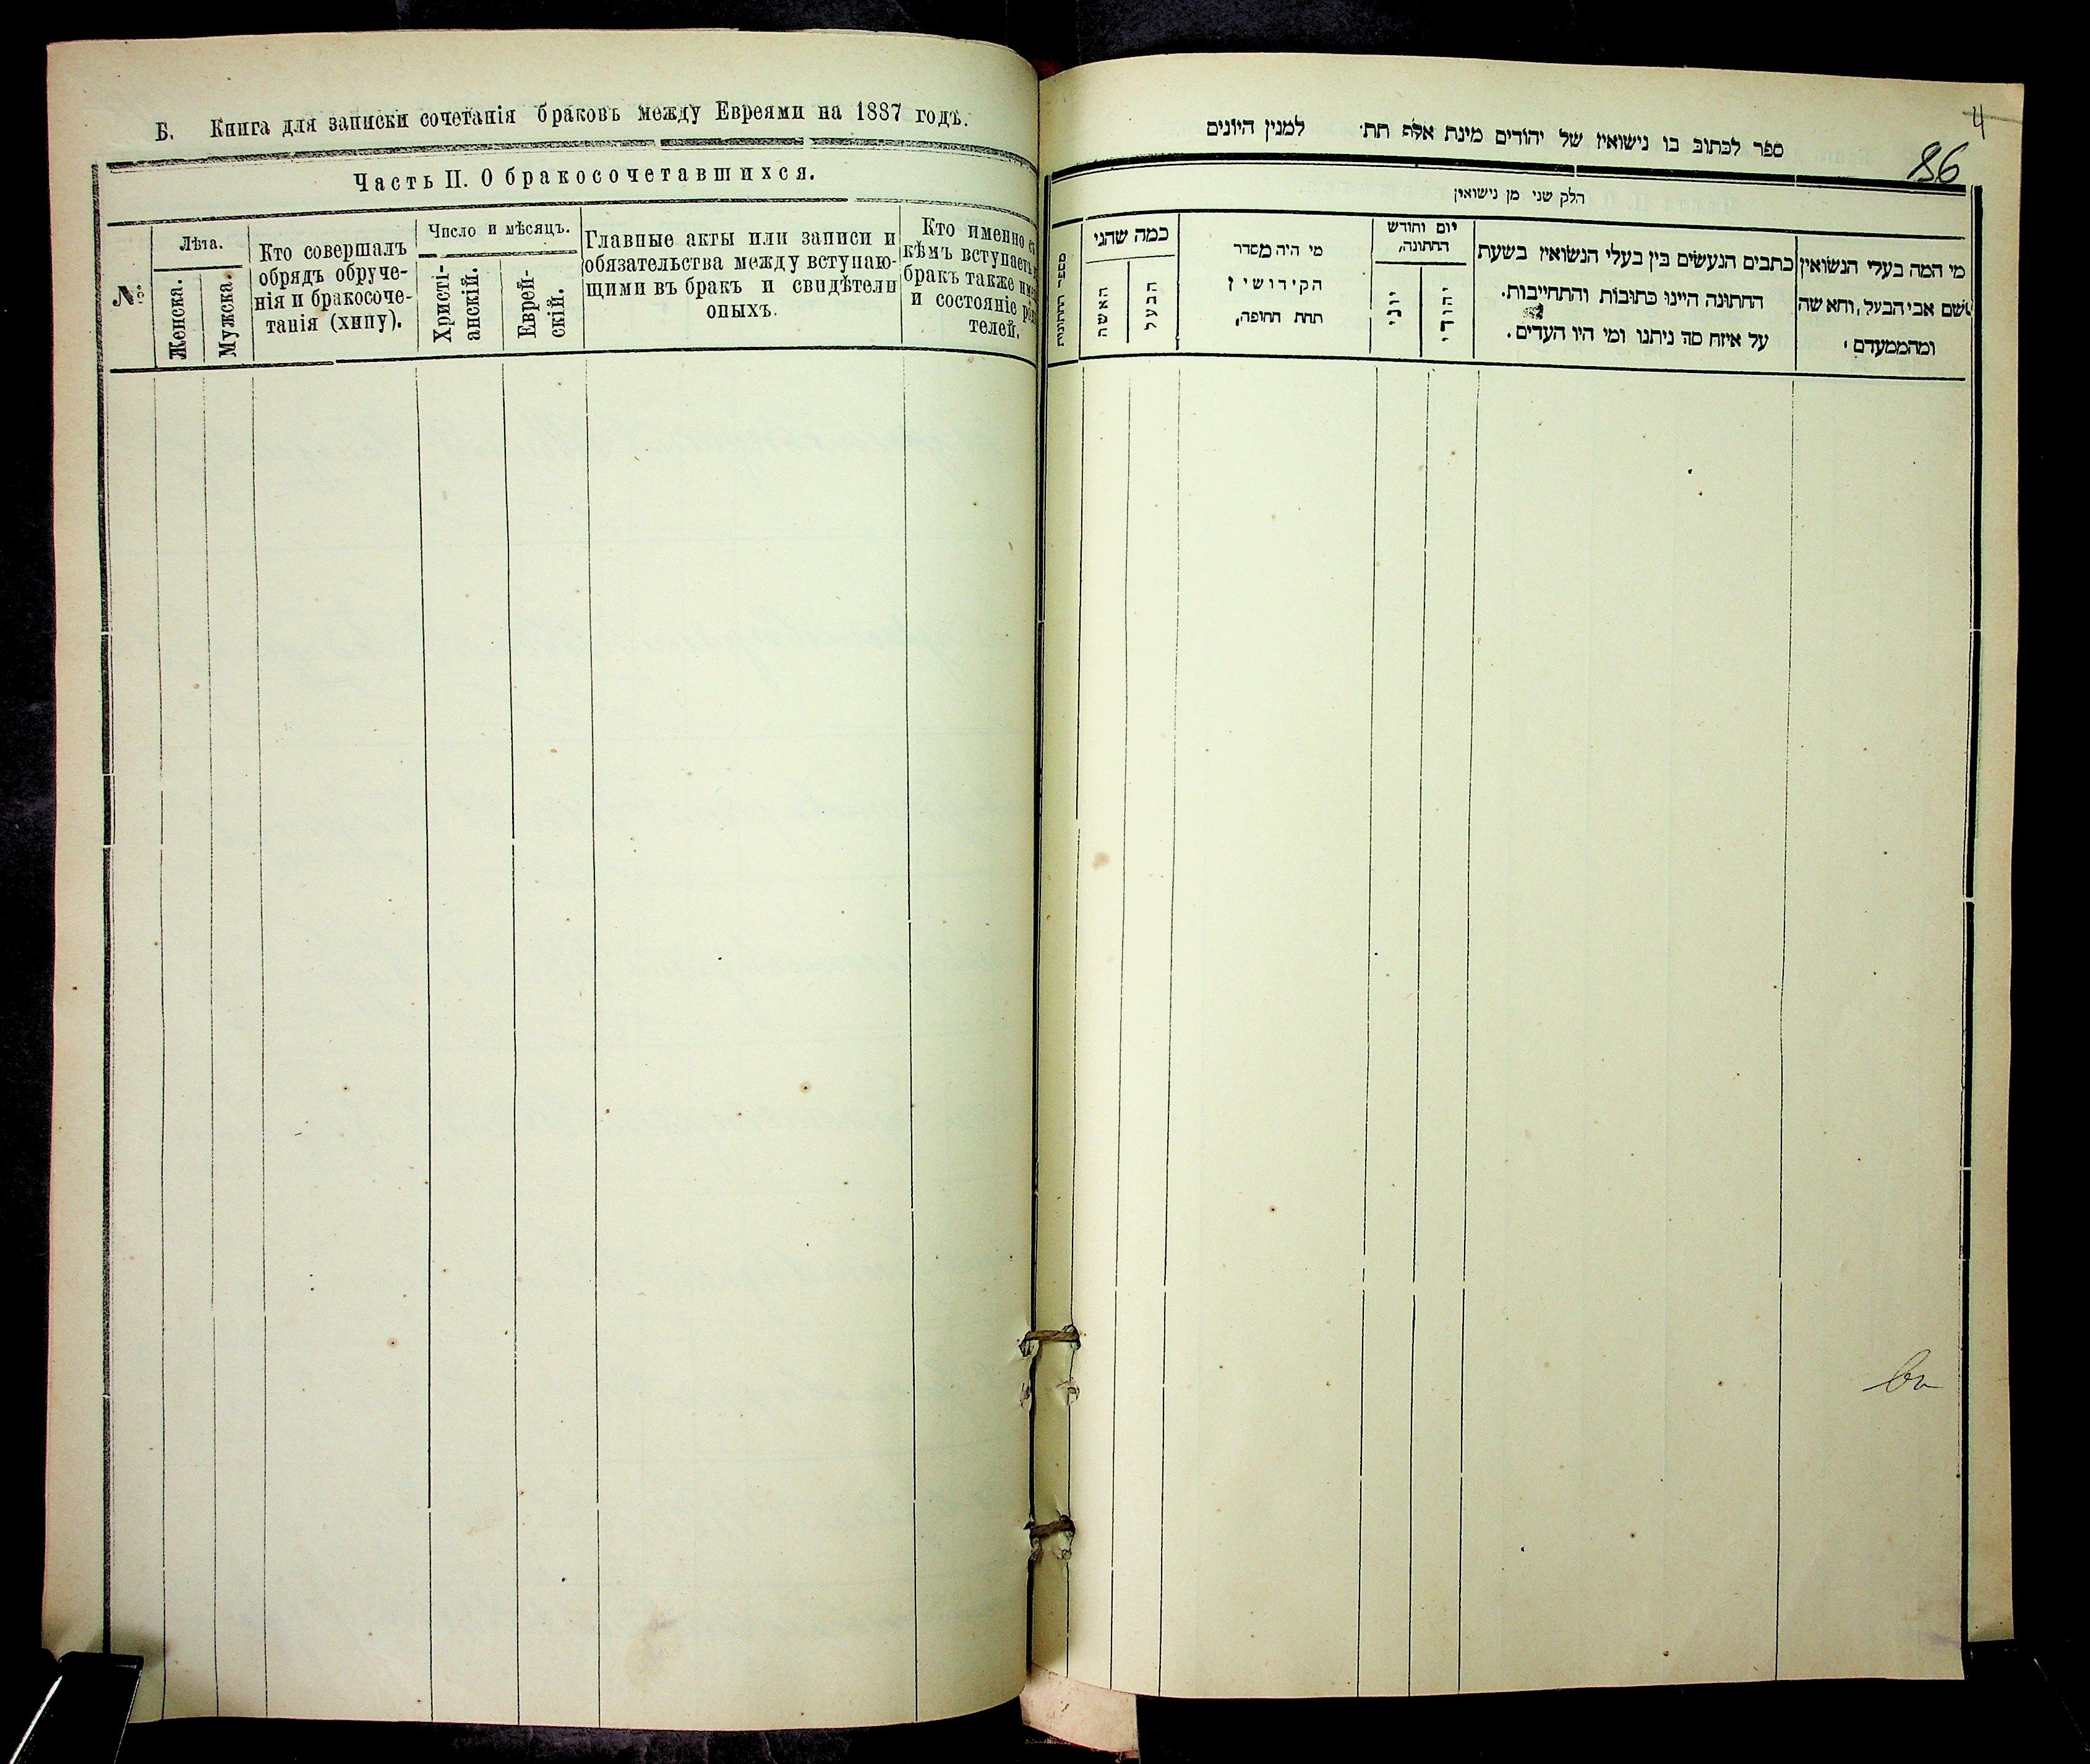 Б. Книга для записки сочетанія браковъ между Евреями на 1887 годъ.
Часть II. О бракосочетавшихся.
№
Лѣта.
Женска.
Мужска.
Кто совершалъ
обрядъ обруче-
нія и бракосоче-
танія (хипу).
Число и мѣсяцъ.
Христі-
анскій.
Еврей-
скій.
Главные акты или записи и
обязательства между вступаю-
щими въ бракъ и свидѣтели
оныхъ.
Кто именно
кѣмъ вступаетъ
бракъ также
и состояніе
телей.
4
ספר לכתוב בו נישואין של יהודים מינת אלף תת׳ למנין היונים
86
חלק שני מן נישואין
מי המה בעלי הנשואין
ושם אבי הבעל, והאשה
ומהממעדם׳
כתבים הנעשים בין בעלי הנשואין בשעת
החתונה היינו כתובות והתחייבות.
על איזה סך ניתנו ומי היו העדים.
יום וחודש
החתונה,
יהודי
יוני
מי היה מסדר
הקידושין
תחת החופה,
כמה שהני
הבעל
האשה
מספר חתונות